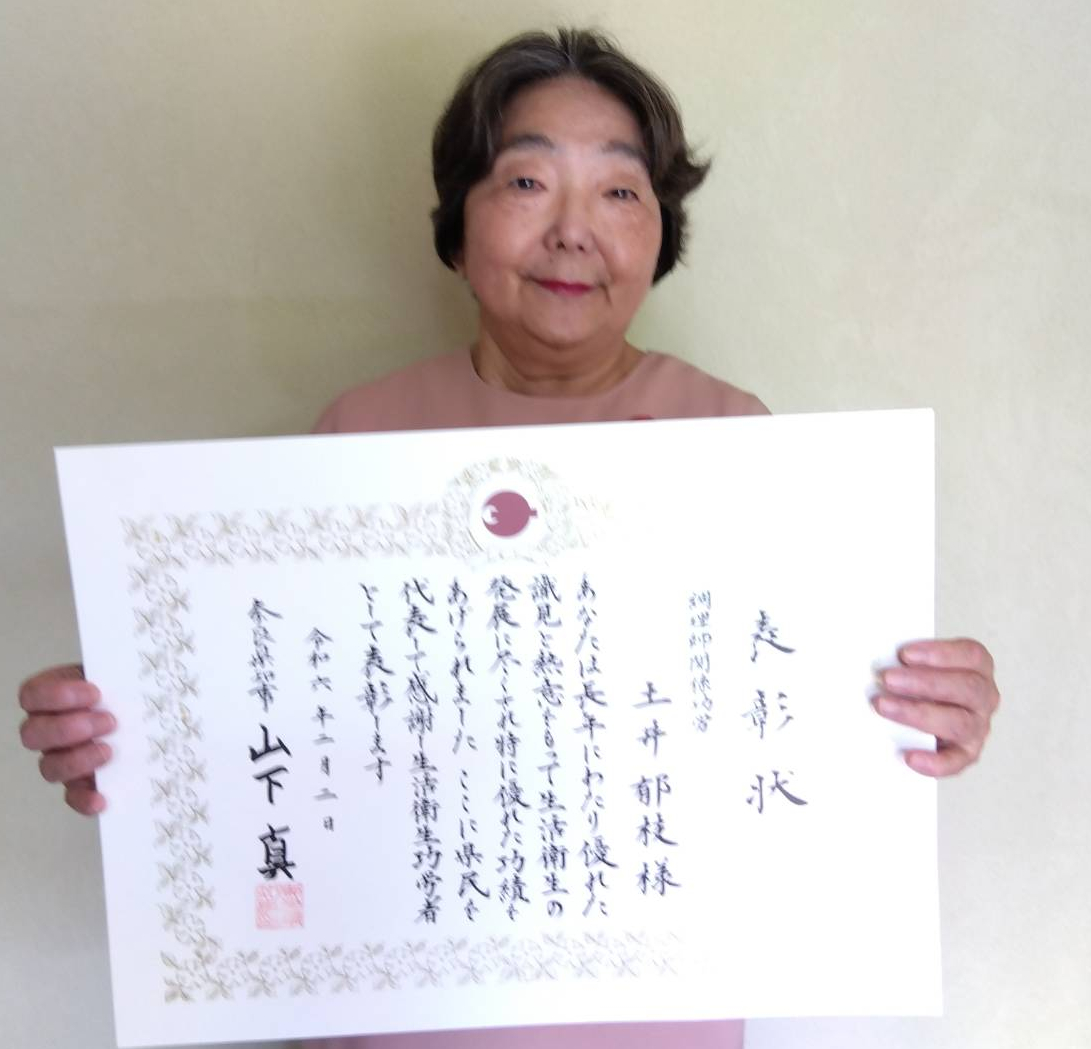 表彰状
調理師関係功労
土井郁枝様
あなたは長年にわたり優れた
識見と熱意をもって生活衛生の
発展に尽くされ特に優れた功績を
あげられました ここに県民を
代表して感謝し生活衛生功労者
として表彰します
令和六年二月二日
奈良県知事 山下 真